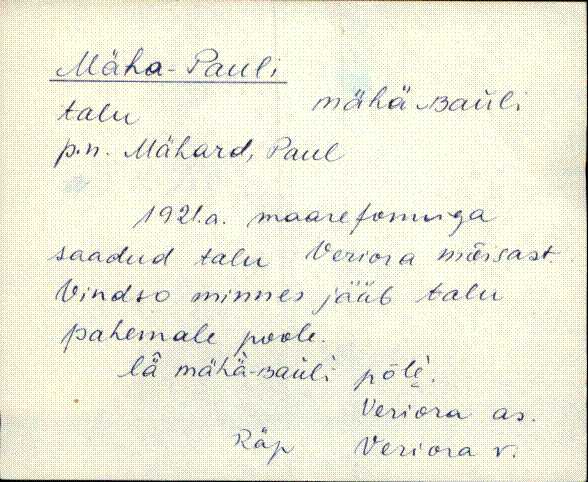 Mäha-Pauli
mähä ʙaùli
talu
p.n. Mähard, Paul
1921.a. maareformiga
saadud talu Veriora mõisast.
Vindso minnes jääb talu
pahemale poole.
lâ mähä-ʙaùli pōlè.
Veriora as.
Räp Veriora v.